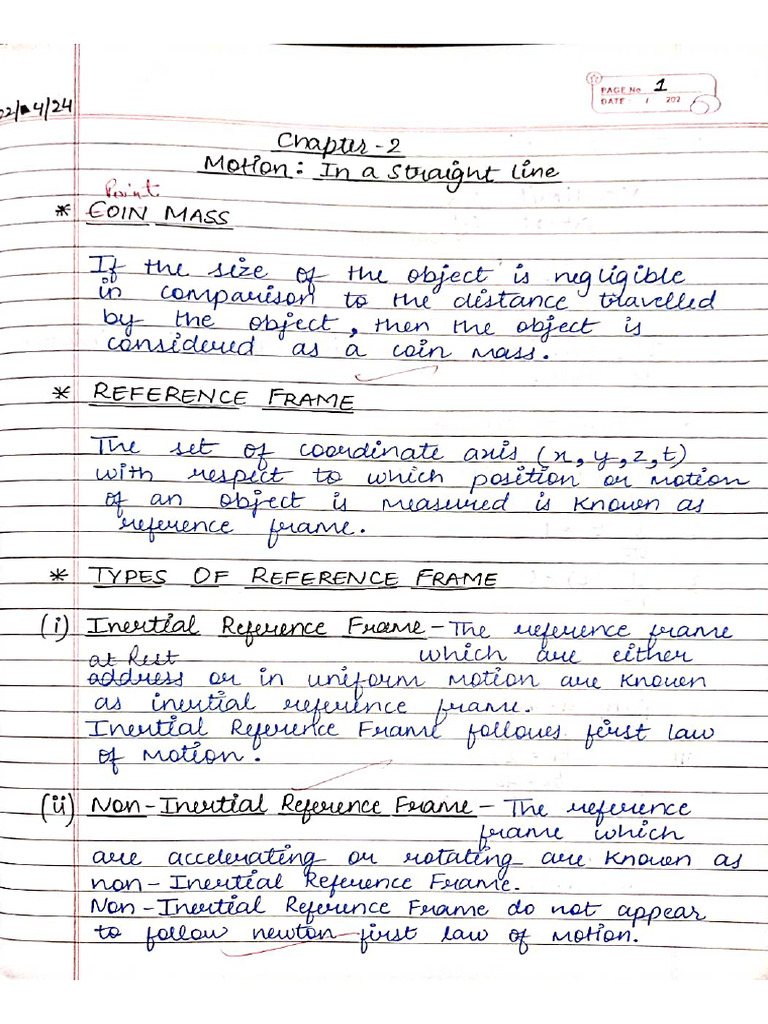 PAGE No. 1
DATE: / 202
02/04/24
Chapter-2
Motion: In a Straight Line
Point
* COIN MASS
If the size of the object is negligible
in comparison to the distance travelled
by the object, then the object is
considered as a coin mass.
* REFERENCE FRAME
The set of coordinate axis (x, y, z, t)
with respect to which position or motion
of an object is measured is known as
reference frame.
* TYPES OF REFERENCE FRAME
(i) Inertial Reference Frame - The reference frame
at Rest which are either
address or in uniform motion are known
as inertial reference frame.
Inertial Reference Frame follows first law
of motion.
(ii) Non-Inertial Reference Frame - The reference
frame which
are accelerating or rotating are known as
non-Inertial Reference Frame.
Non-Inertial Reference Frame do not appear
to follow newton first law of motion.